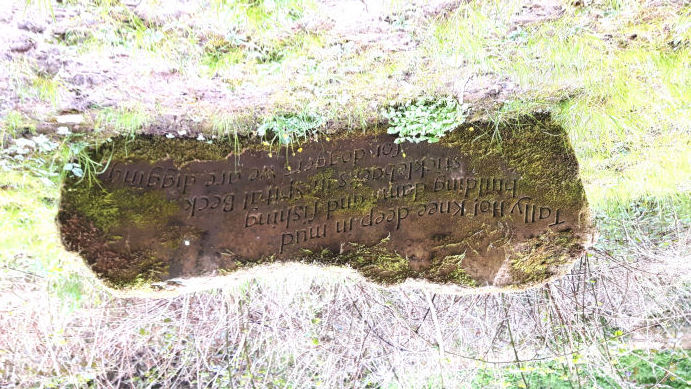 Tally Ho! Knee deep in mud
building dams and fishing
sticklebacks in Spittal Beck
we are digging